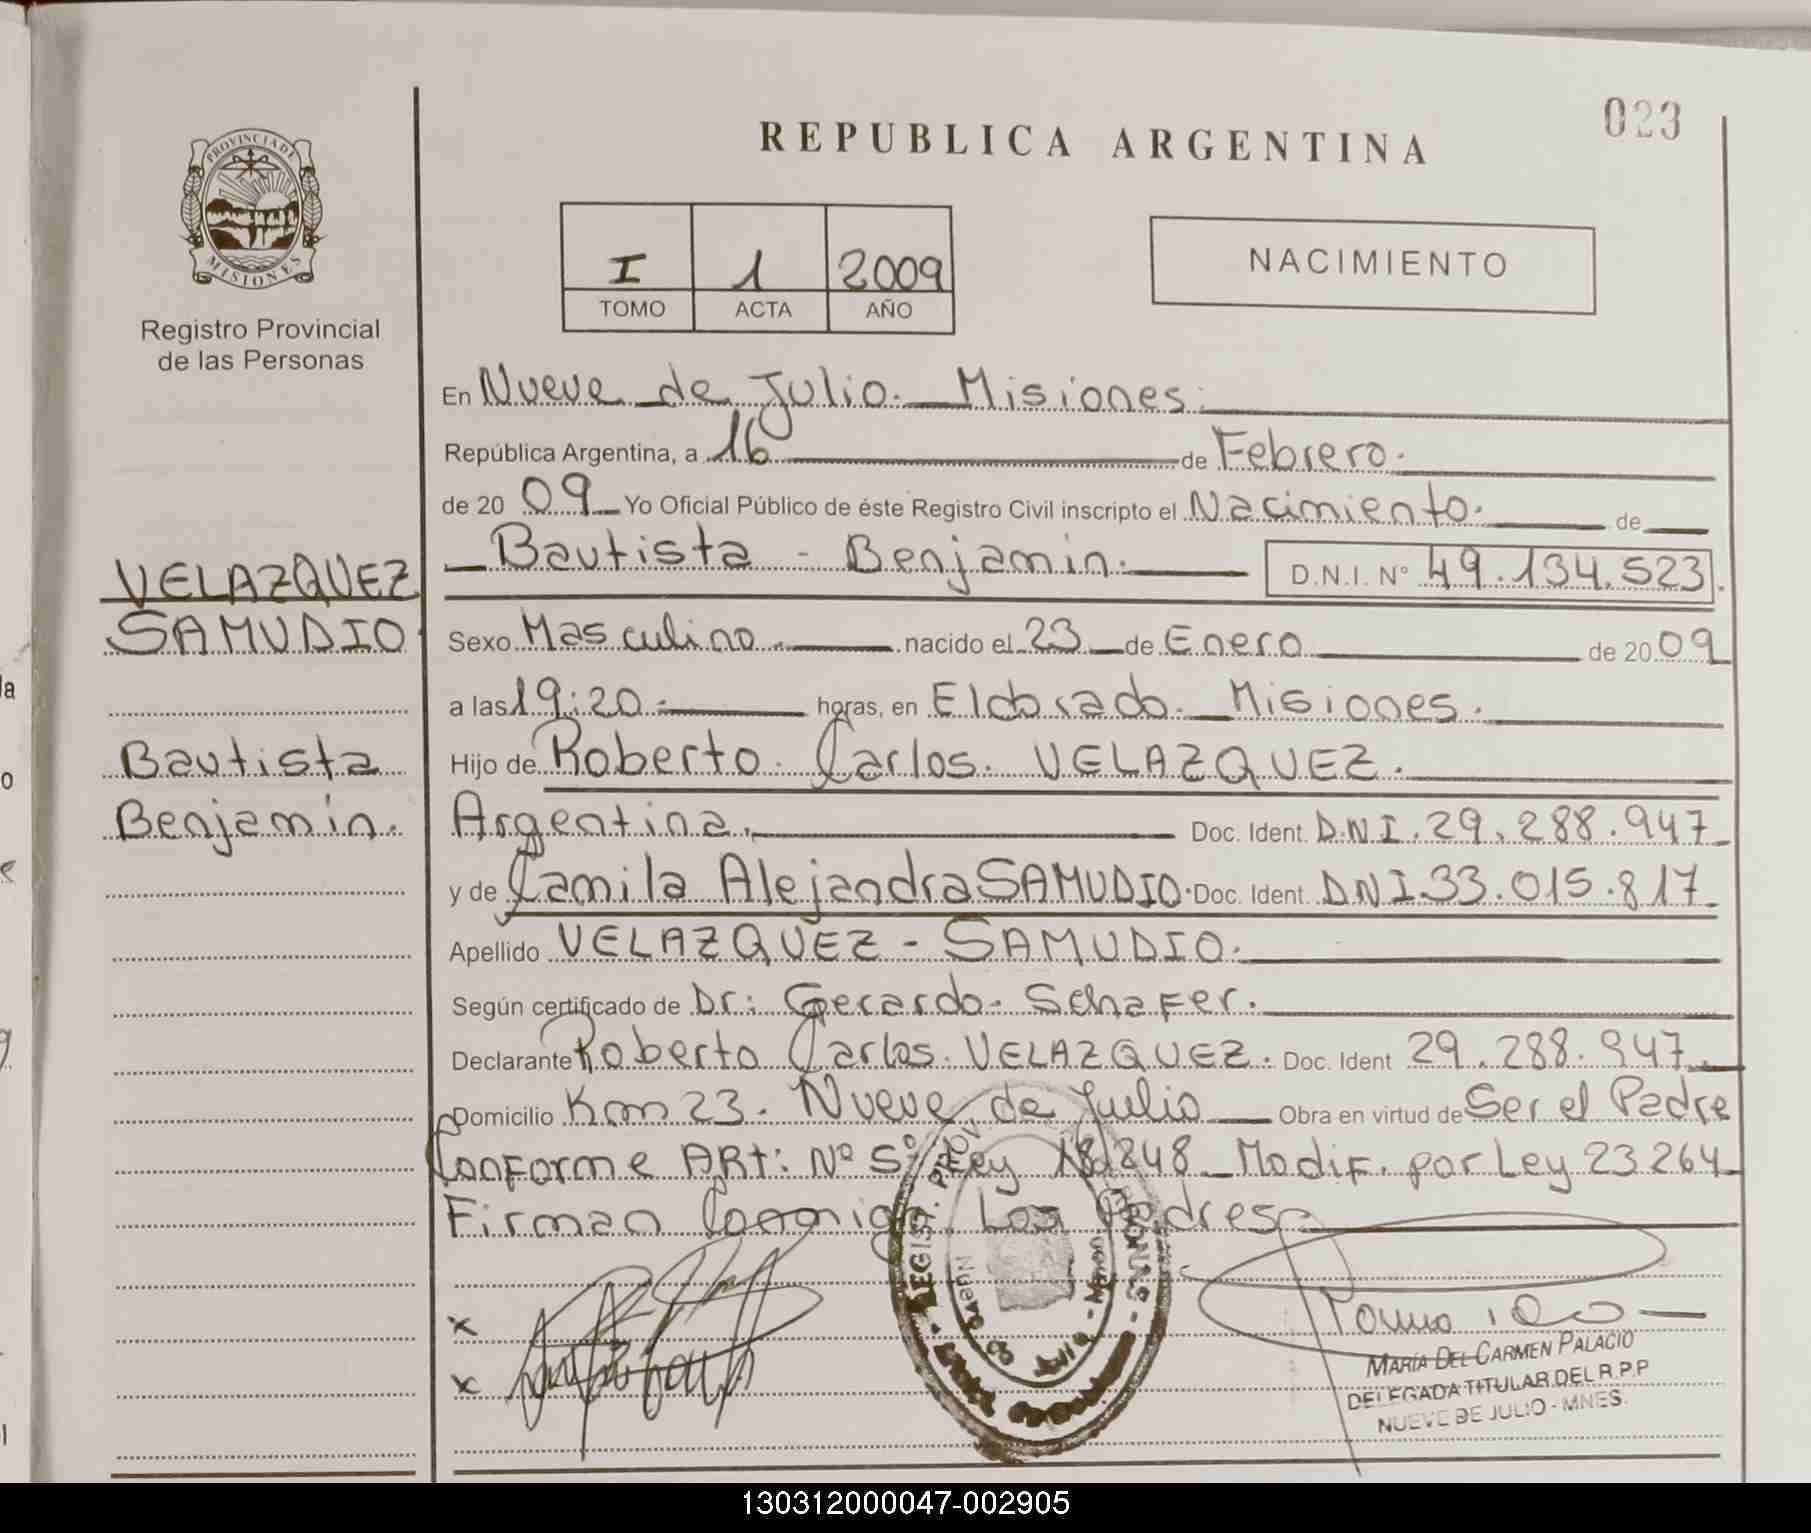 023
REPUBLICA ARGENTINA
PROVINCIA DE
MISIONES
Registro Provincial
de las Personas
I 1 2009
TOMO ACTA AÑO
NACIMIENTO
En Nueve de Julio. Misiones.
República Argentina, a 16 de Febrero.
de 20 09 Yo Oficial Público de éste Registro Civil inscripto el Nacimiento. de
Bautista - Benjamin. D.N.I. N° 49.134.523
VELAZQUEZ
SAMUDIO
Bautista
Benjamin.
Sexo Masculino. nacido el 23 de Enero de 20 09
a las 19:20 horas, en Eldorado. Misiones.
Hijo de Roberto Carlos. VELAZQUEZ.
Argentina. Doc. Ident. D.N.I. 29.288.947
y de Camila Alejandra SAMUDIO. Doc. Ident. D.N.I. 33.015.817
Apellido VELAZQUEZ - SAMUDIO.
Según certificado de Dr: Gerardo. Schafer.
Declarante Roberto Carlos. VELAZQUEZ. Doc. Ident 29.288.947
Domicilio Km 23. Nueve de Julio Obra en virtud de Ser el Padre
Conforme ART: N° 5° Ley 18248 Modif. por Ley 23264
Firman Conmigo Los Padres
x
x
MARÍA DEL CARMEN PALACIO
DELEGADA TITULAR DEL R.P.P
NUEVE DE JULIO - MNES.
130312000047-002905